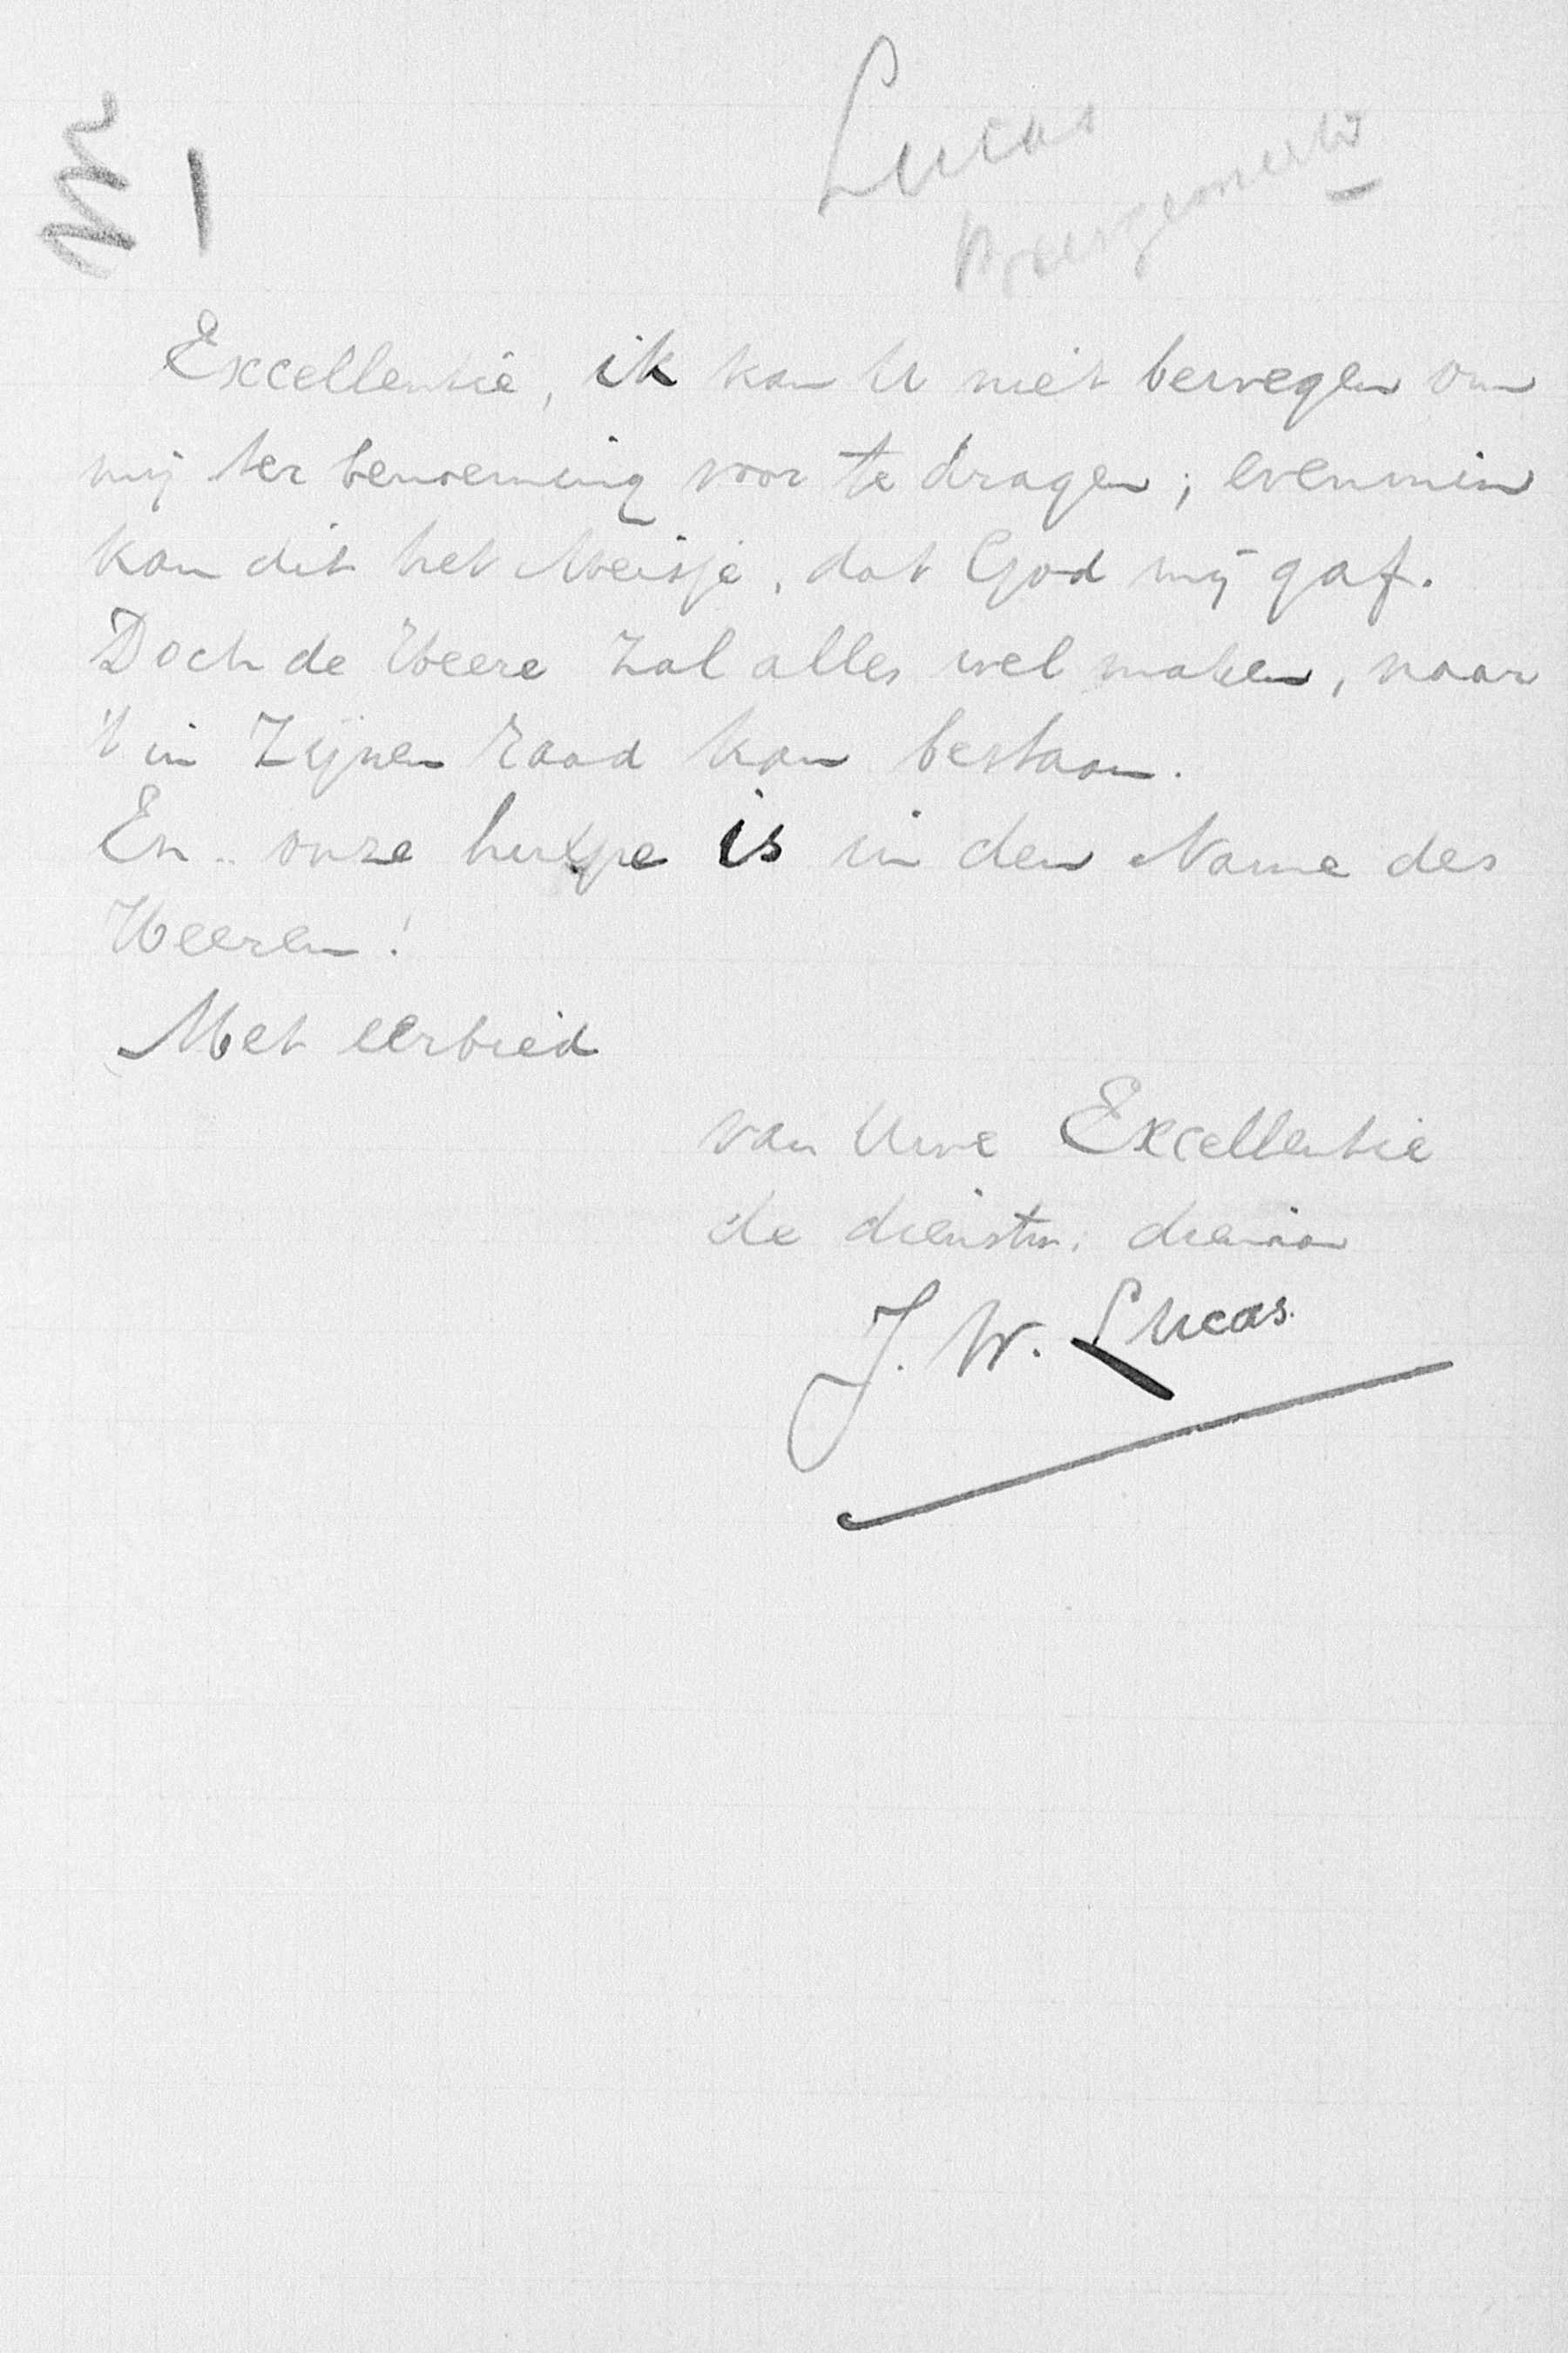 Lucas
Excellentie, ik kan U niet bewegen om
mij ter benoeming voor te dragen; evenmin
kan dit het Meisje, dat God mij gaf.
Doch de Heere zal alles wel maken, naar
't in Zijnen raad kan bestaan.
En.. onze hulpe is in den Name des
Heeren!
Met eerbied
van Uwe Excellentie
de dienstw. dienaar
J. W. Lucas.